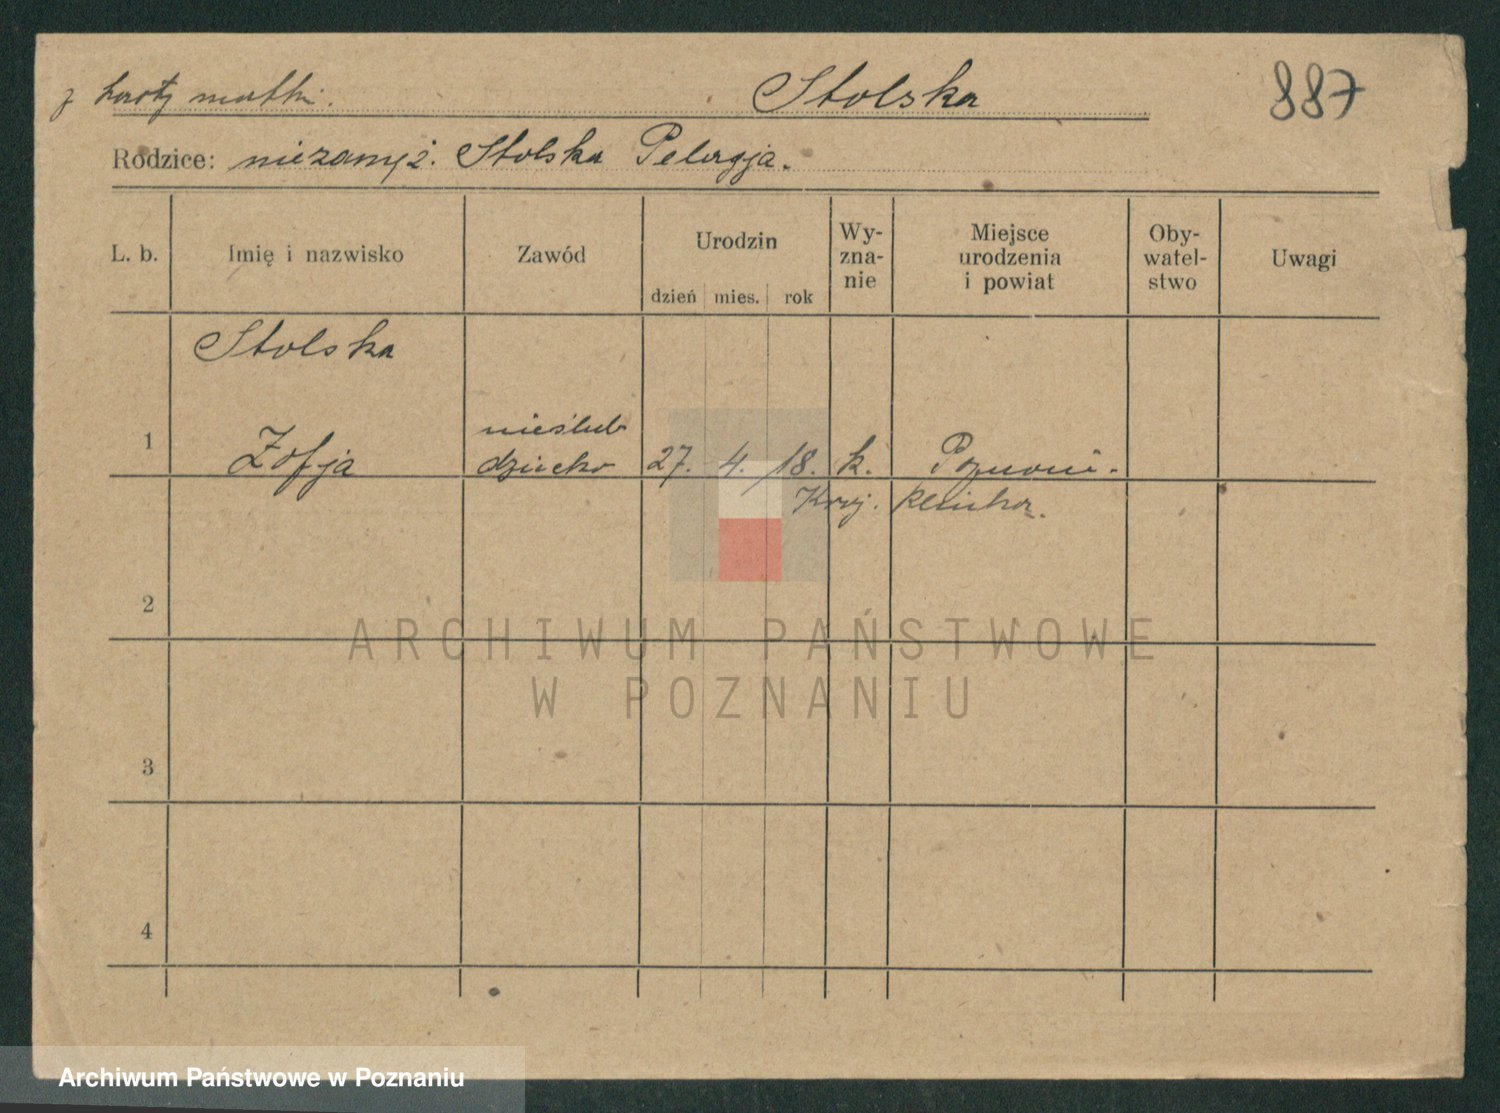 z karty matki.
Stolska
887
Rodzice: niezamęż. Stolska Pelagja.
L. b.
Imię i nazwisko
Zawód
Urodzin
dzień
mies.
rok
Wy-
zna-
nie
Miejsce
urodzenia
i powiat
Oby-
watel-
stwo
Uwagi
Stolska
1
Zofja
nieślub
dziecko
27.
4.
18.
k.
Poznani.
klinika.
2
3
4
ARCHIWUM PAŃSTWOWE
W POZNANIU
Archiwum Państwowe w Poznaniu